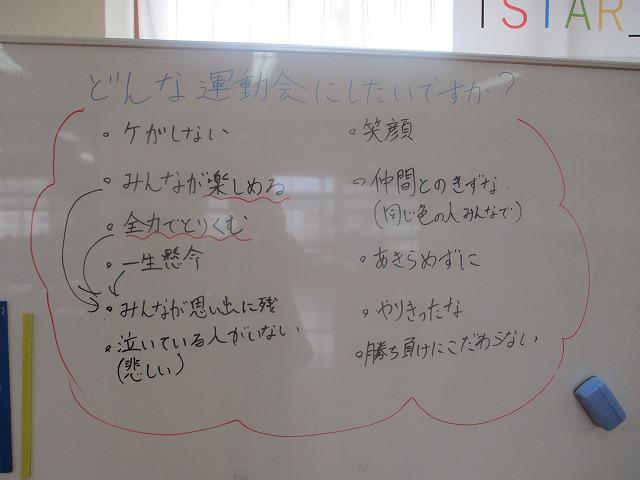 STAR
どんな運動会にしたいですか?
・ケがしない
・みんなが楽しめる
・全力でとりくむ
・一生懸命
・みんなが思い出に残
・泣いている人がいない
(悲しい)
・笑顔
・仲間とのきずな
(同じ色の人みんなで)
・あきらめずに
・やりきったな
・勝ち負けにこだわらない